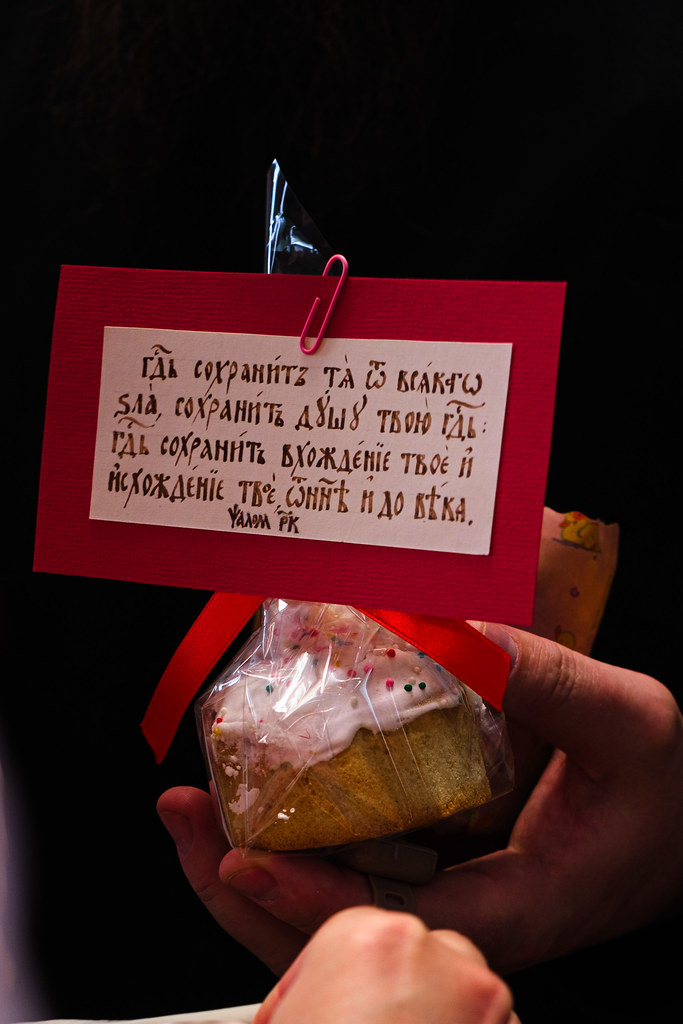 гдⷭ҇ь сохрани́тъ тѧ̀ ѿ всѧ́кагѡ
ѕла̀, сохрани́тъ дꙋ́шꙋ твою̀ гдⷭ҇ь:
гдⷭ҇ь сохрани́тъ вхожде́нїе твоѐ и҆
и҆схожде́нїе твоѐ, ѿнн҃ѣ и҆ до вѣ́ка.
Ѱалом р҃к